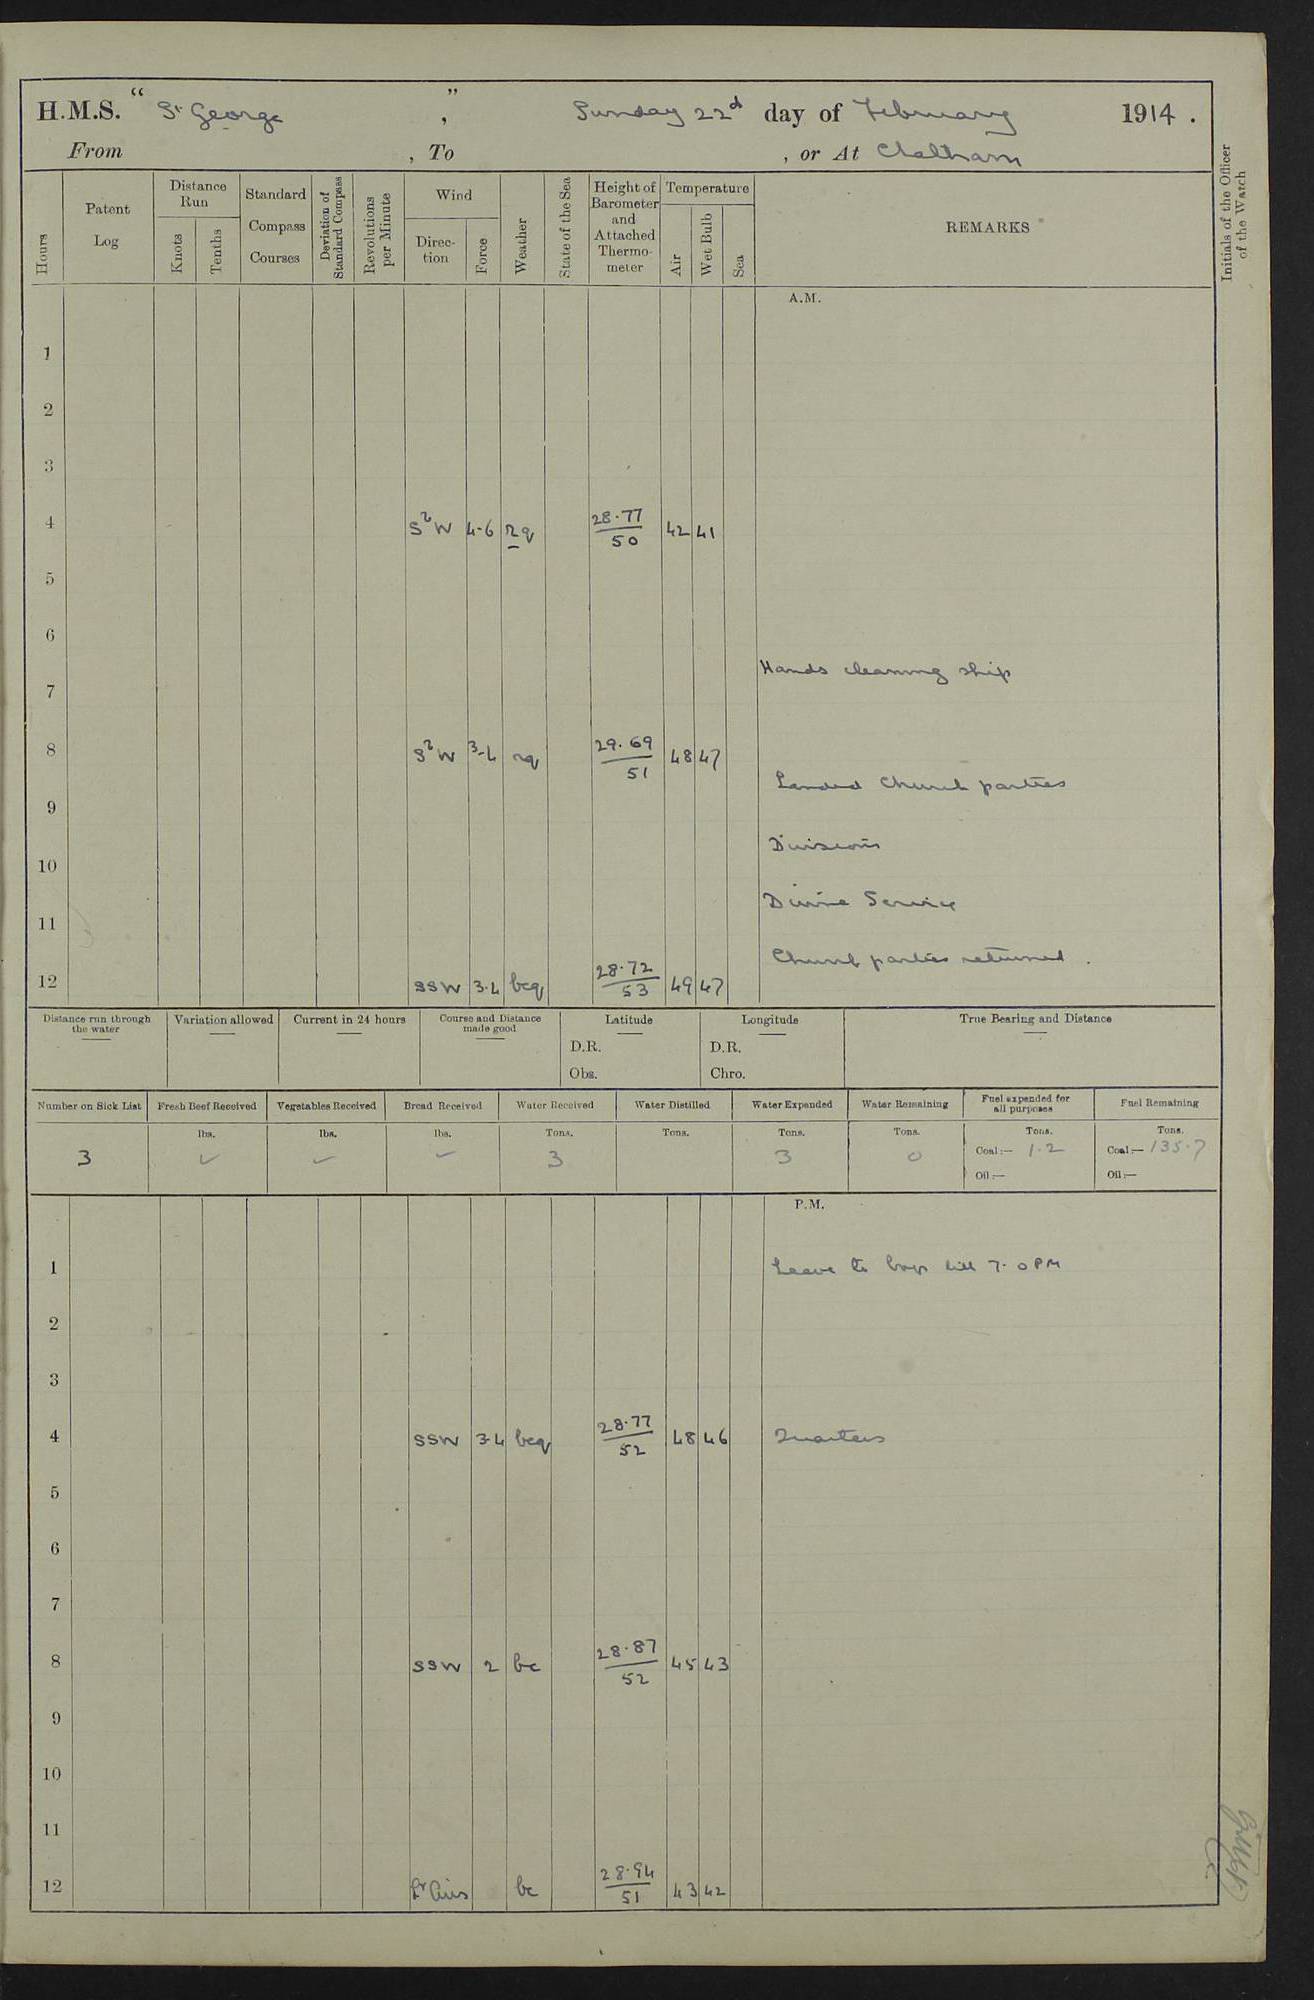 H.M.S. “ St George ” , Sunday 22d day of February 1914 .
From , To , or At Chatham
Hours
Patent Log
Distance Run
Knots
Tenths
Standard Compass Courses
Deviation of Standard Compass
Revolutions per Minute
Wind
Direc-tion
Force
Weather
State of the Sea
Height of Barometer and Attached Thermo-meter
Temperature
Air
Wet Bulb
Sea
REMARKS
Initials of the Officer of the Watch
A.M.
1
2
3
4 SꝰW 4-6 rq 28.77 / 50 42 41
5
6
Hands cleaning ship
7
8 SꝰW 3-4 rq 29.69 / 51 48 47
Landed Church parties
9
Divisions
10
Divine Service
11
Church parties returned .
12 SSW 3.4 bcq 28.72 / 53 49 47
Distance run through the water
Variation allowed
Current in 24 hours
Course and Distance made good
Latitude
D.R.
Obs.
Longitude
D.R.
Chro.
True Bearing and Distance
Number on Sick List
Fresh Beef Received
Vegetables Received
Bread Received
Water Received
Water Distilled
Water Expended
Water Remaining
Fuel expended for all purposes
Fuel Remaining
lbs. lbs. lbs. Tons. Tons. Tons. Tons. Tons. Tons.
3 ✓ ✓ ✓ 3 3 0 Coal:— 1.2 Coal:— 135.7
Oil:— Oil:—
P.M.
1 Leave to boys till 7.0 PM
2
3
4 SSW 3.4 bcq 28.77 / 52 48 46 Quarters
5
6
7
8 SSW 2 bc 28.87 / 52 45 43
9
10
11
12 Lt Airs bc 28.94 / 51 43 42